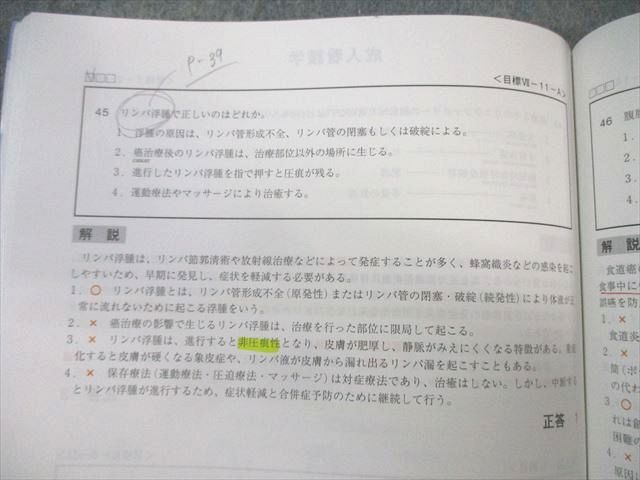 P-39
<目標Ⅶ-11-A>
45 リンパ浮腫で正しいのはどれか。
1．浮腫の原因は、リンパ管形成不全、リンパ管の閉塞もしくは破綻による。
2．癌治療後のリンパ浮腫は、治療部位以外の場所に生じる。
3．進行したリンパ浮腫を指で押すと圧痕が残る。
4．運動療法やマッサージにより治癒する。
解説
リンパ浮腫は、リンパ節郭清術や放射線治療などによって発症することが多く、蜂窩織炎などの感染を起こ
しやすいため、早期に発見し、症状を軽減する必要がある。
1．○ リンパ浮腫とは、リンパ管形成不全(原発性)またはリンパ管の閉塞・破綻(続発性)により体液が正
常に流れないために起こる浮腫をいう。
2．× 癌治療の影響で生じるリンパ浮腫は、治療を行った部位に限局して起こる。
3．× リンパ浮腫は、進行すると非圧痕性となり、皮膚が肥厚し、静脈がみえにくくなる特徴がある。重症
化すると皮膚が硬くなる象皮症や、リンパ液が皮膚から漏れ出るリンパ漏を起こすこともある。
4．× 保存療法(運動療法・圧迫療法・マッサージ)は対症療法であり、治癒はしない。しかし、中断する
とリンパ浮腫が進行するため、症状軽減と合併症予防のために継続して行う。
正答 1
46 腹腔
1．
2．
3．
4．
解説
食道癌
食事中に
誤嚥を防
1．×
食道炎
2．×
筒(ポ
の代わ
3．○
れは創
困難の
4．×